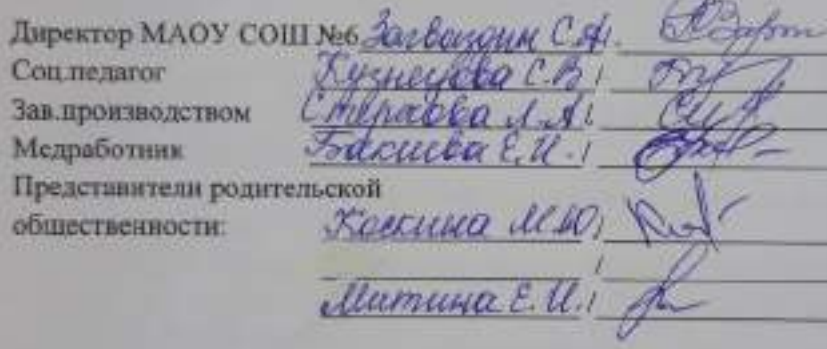 Директор МАОУ СОШ №6 Загваздин С.А.
Соц.педагог Кузнецова С.В /
Зав.производством Стерхова Л.А /
Медработник Бакиева Е.И. /
Представители родительской
общественности: Коскина М.Ю /
/
Митина Е.И. /